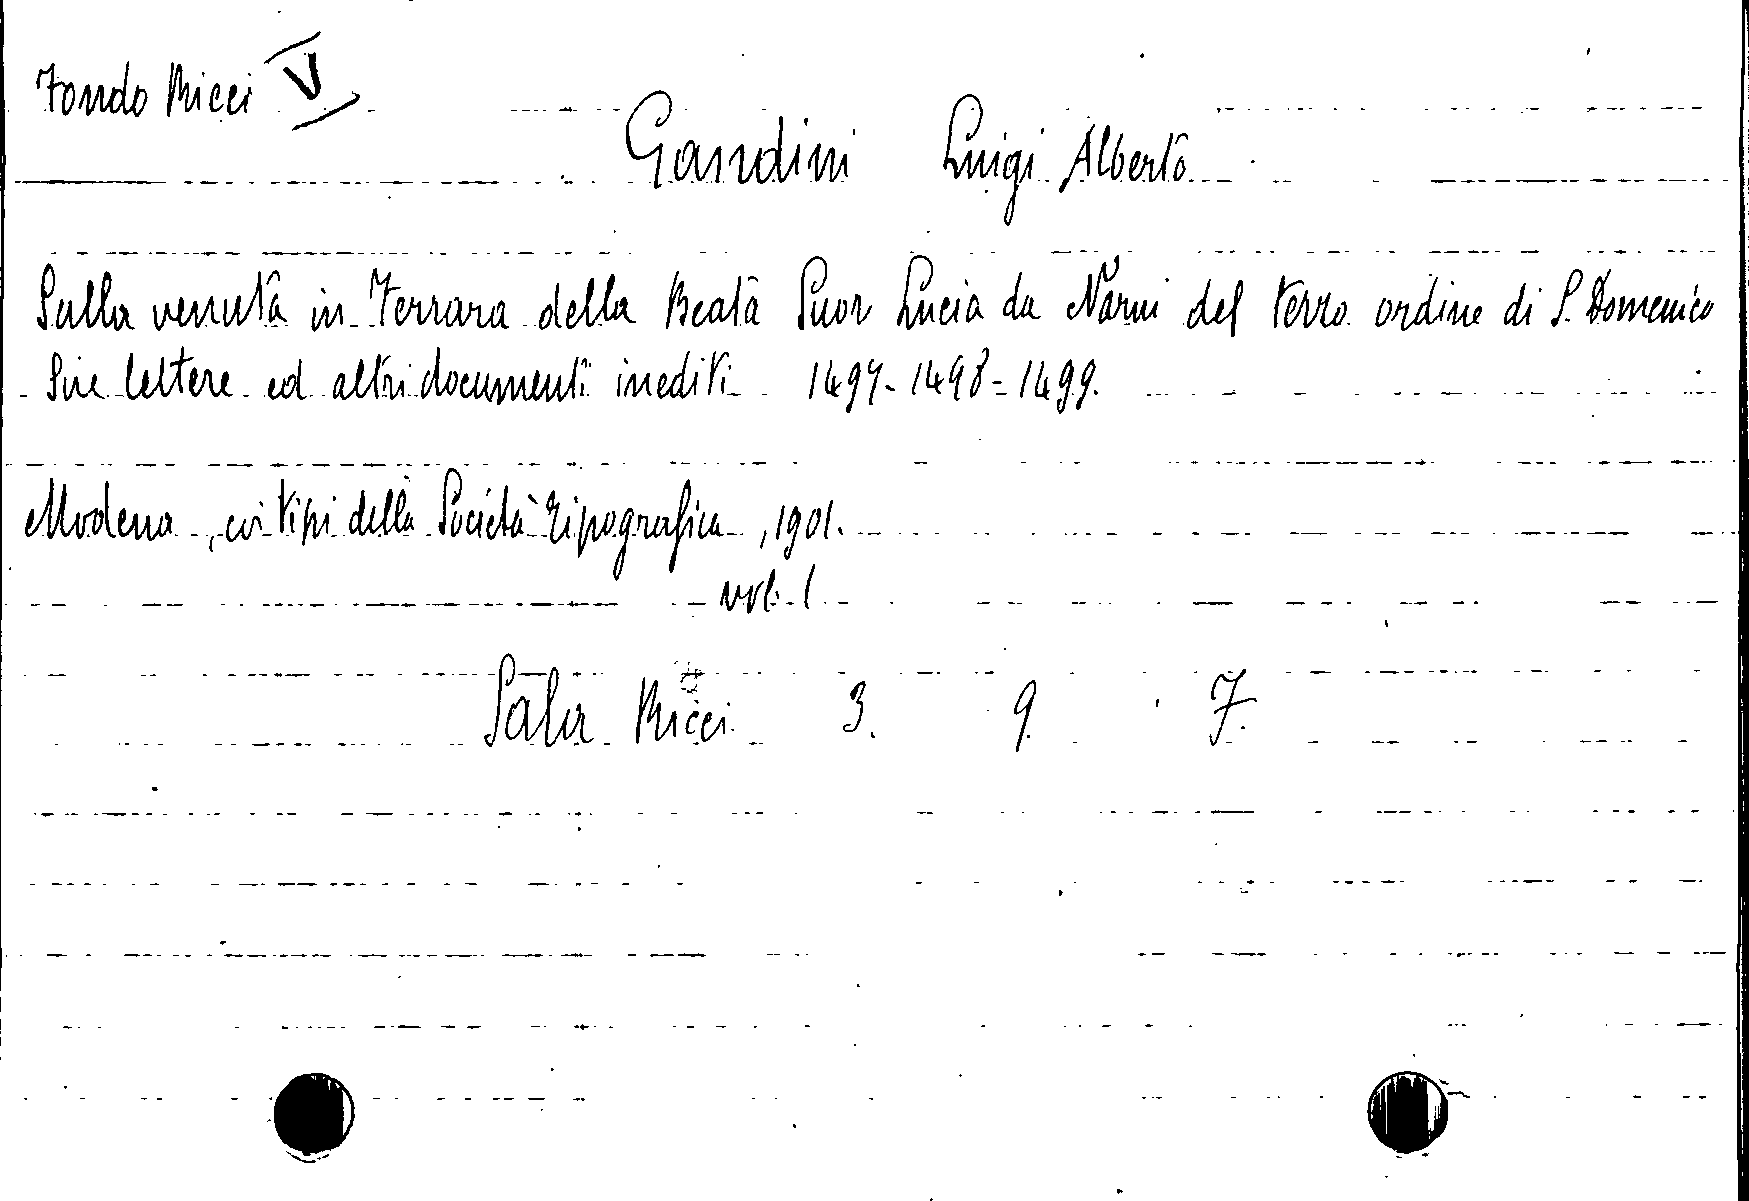 Fondo Ricci V
Gandini Luigi Alberto
Sulla venuta in Ferrara della Beata Suor Lucia da Narni del terzo ordine di S. Domenico
Sue lettere ed altri documenti inediti 1497-1498=1499.
Modena, coi tipi della Società Tipografica, 1901.
vol. 1
Sala Ricci 3. 9. 7.